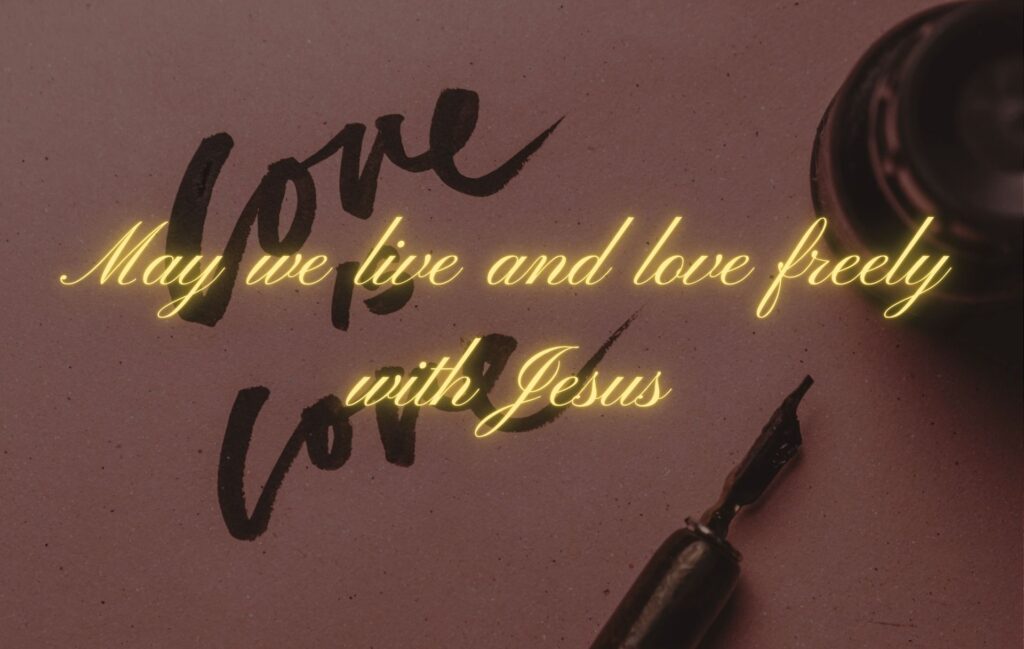 Love
is
Love
May we live and love freely
with Jesus